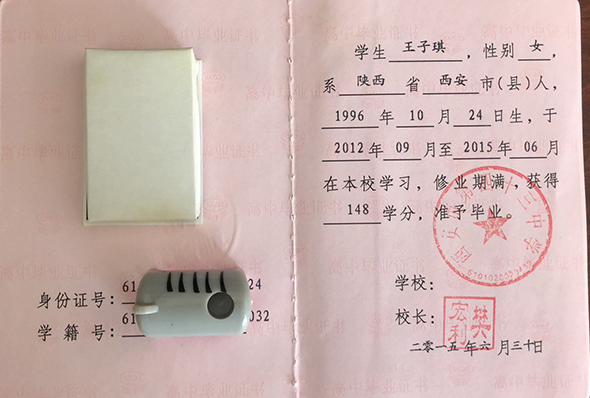 身份证号：61 24
学籍号：61 032
学生 王子琪 ，性别 女 ，
系 陕西 省 西安 市(县)人，
1996 年 10 月 24 日生，于
2012 年 09 月至 2015 年 06 月
在本校学习，修业期满，获得
148 学分，准予毕业。
学校：
校长：
樊宏利
二零一五年六月三十日